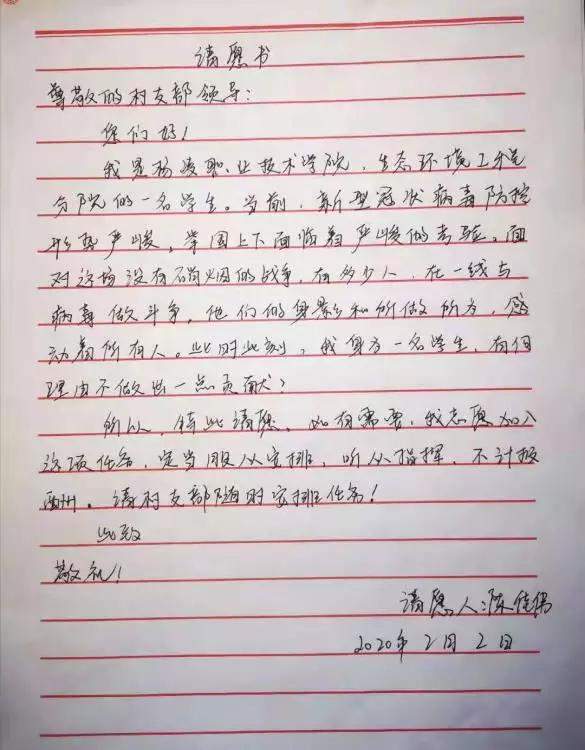 请愿书
尊敬的村支部领导：
您们好！
我是杨凌职业技术学院，生态环境工程
分院的一名学生。当前，新型冠状病毒防控
形势严峻，举国上下面临着严峻的考验。面
对这场没有硝烟的战争，有多少人，在一线与
病毒做斗争，他们的身影和所做所为，感
动着所有人。此时此刻，我身为一名学生，有何
理由不做出一点贡献？
所以，特此请愿，如有需要，我志愿加入
这项任务，定当服从安排，听从指挥，不计报
酬。请村支部随时安排任务！
此致
敬礼！
请愿人：陈佳
2020年2月2日